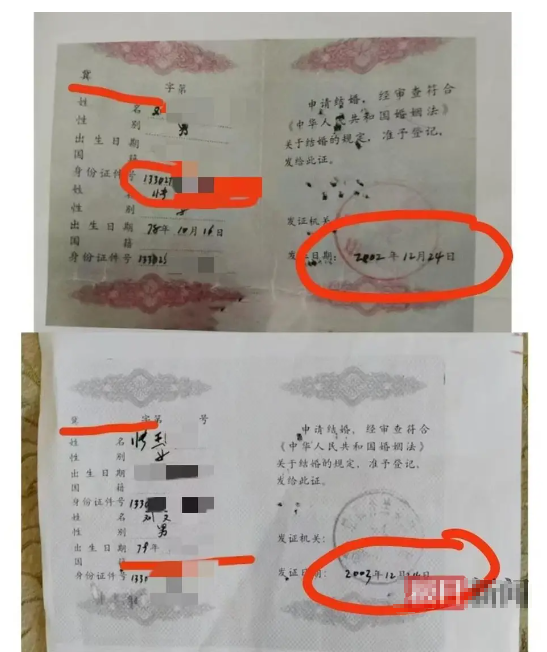 冀 字第
姓 名 刘
性 别 男
出生日期
国 籍
身份证件号 133025
姓 名
性 别 女
出生日期 78年10月16日
国 籍
身份证件号 133025
申请结婚，经审查符合
《中华人民共和国婚姻法》
关于结婚的规定，准予登记，
发给此证。
发证机关
发证日期：2002年12月24日
冀 字第 号
姓 名
性 别 女
出生日期
国 籍
身份证件号 1330
姓 名 刘文
性 别 男
出生日期 79年
国 籍
身份证件号 1330
申请结婚，经审查符合
《中华人民共和国婚姻法》
关于结婚的规定，准予登记，
发给此证。
发证机关：
发证日期：2003年12月24日
新闻